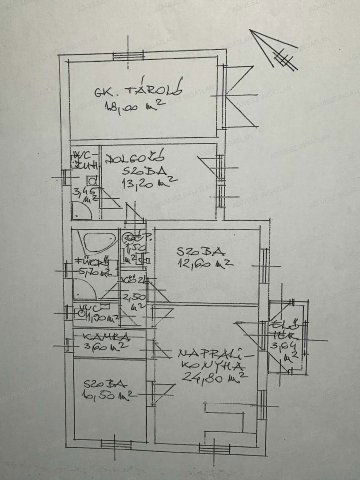 GK. TÁROLÓ
18,00 m²
WC-
3,46
m²
DOLGOZÓ
SZOBA
13,20 m²
SZOBA
12,60 m²
FÜRDŐ
5,20 m²
1,50
m²
2,50
m²
WC
1,20 m²
KAMRA
3,60 m²
NAPPALI-
KONYHA
24,80 m²
ELŐ
TÉR
3,64
m²
SZOBA
10,50 m²